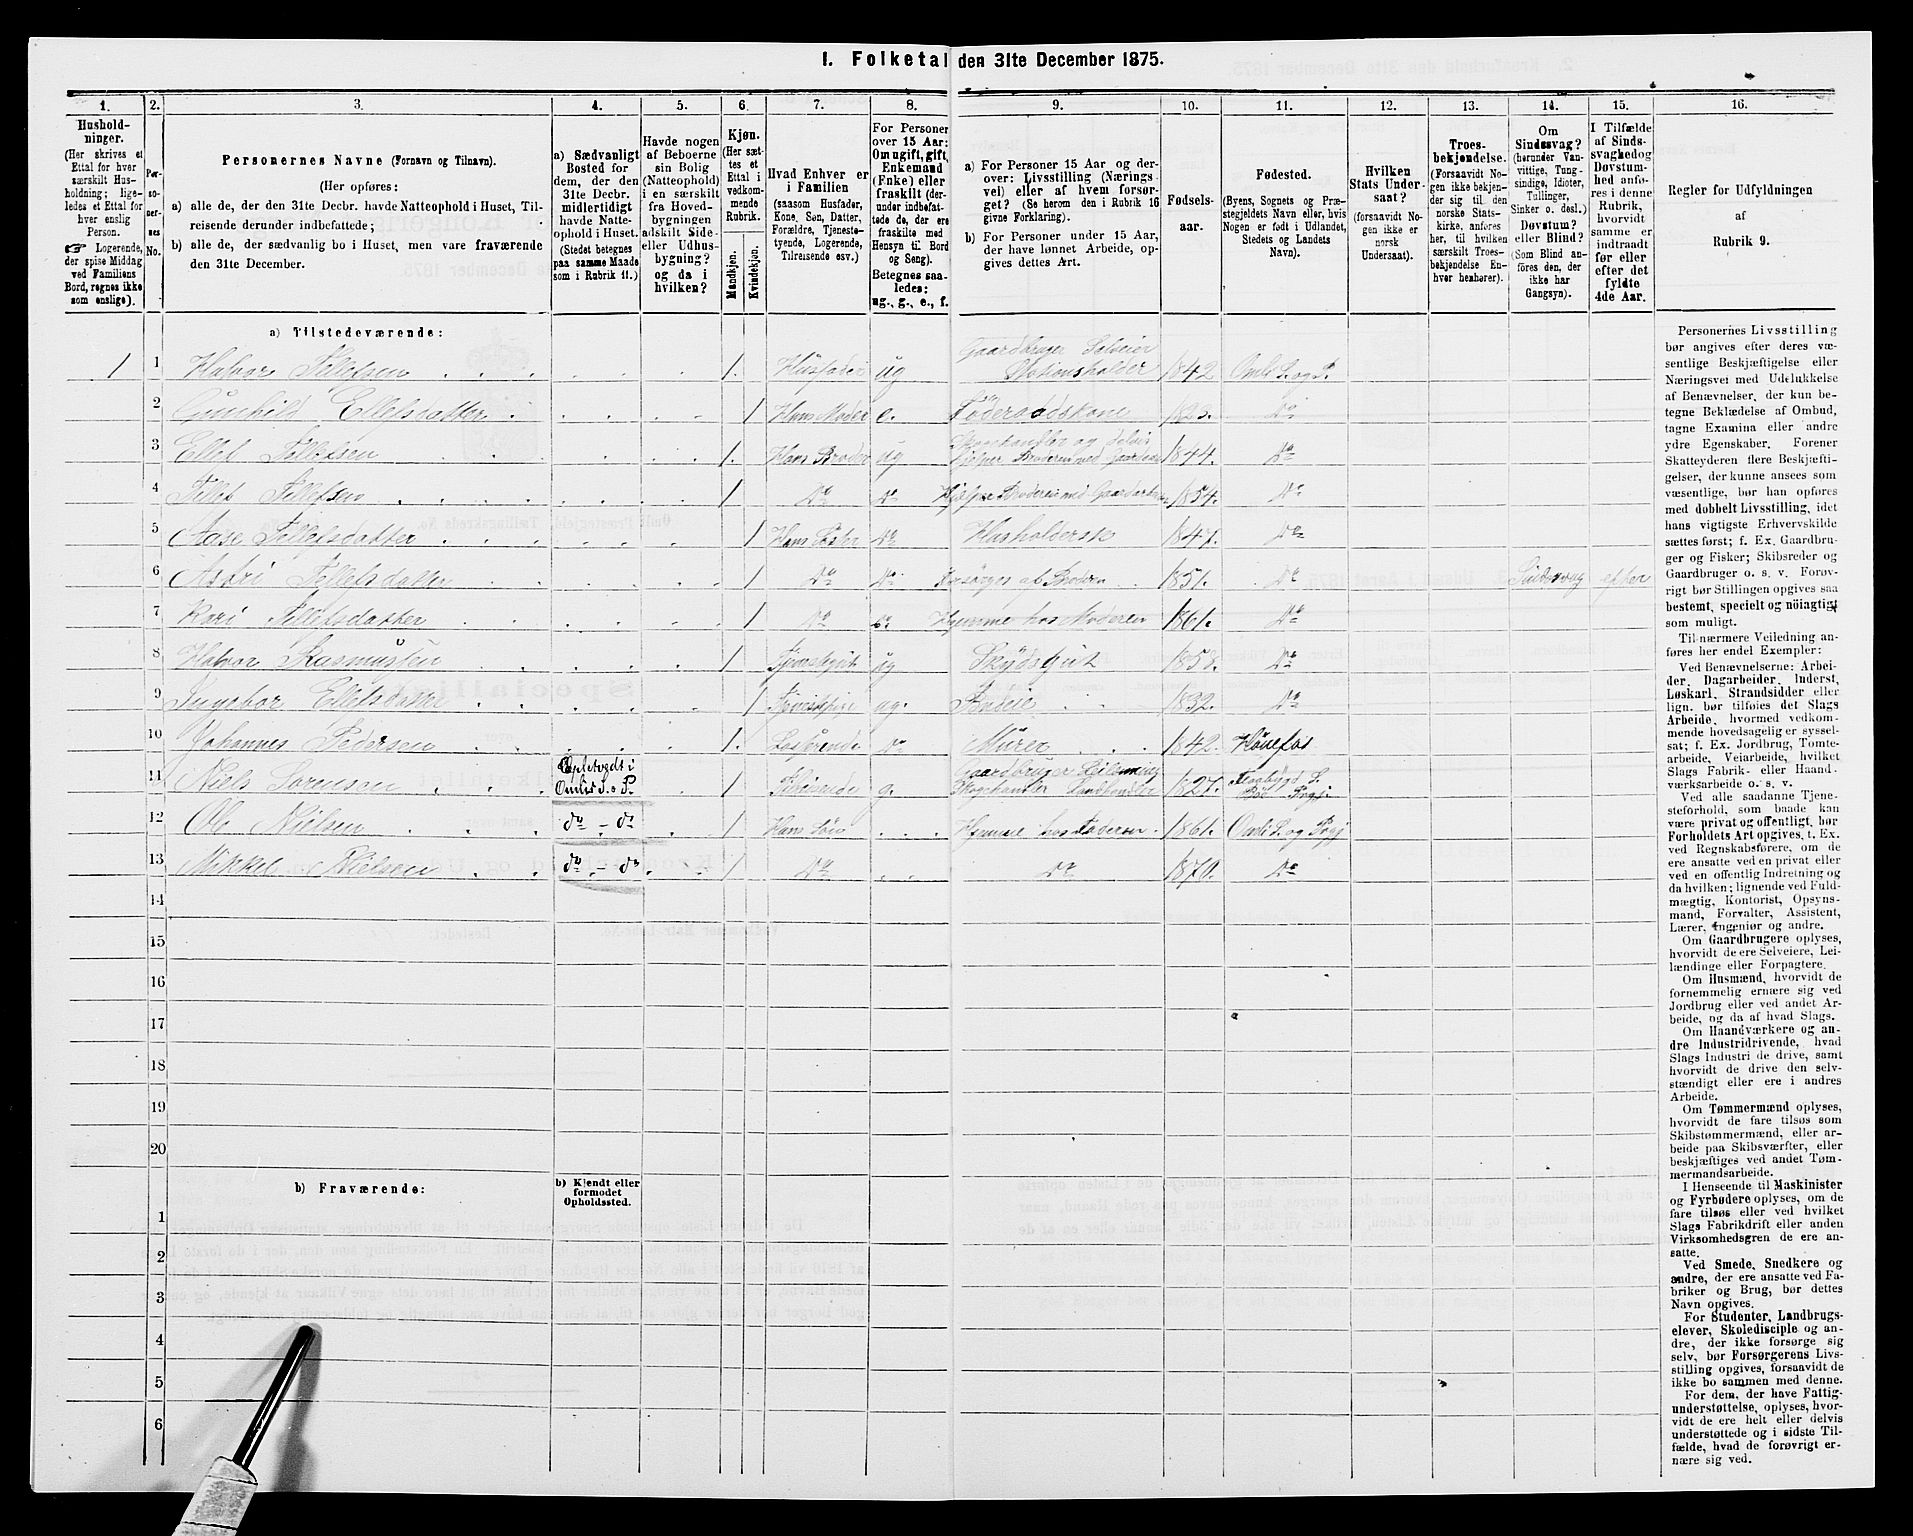 I. Folketal den 31te December 1875.
1. 2. 3. 4. 5. 6. 7. 8. 9. 10. 11. 12. 13. 14. 15. 16.
Hushold-
ninger.
(Her skrives et
Ettal for hver
særskilt Hus-
holdning; lige-
ledes et Ettal for
hver enslig
Person.
☞ Logerende,
der spise Middag
ved Familiens
Bord, regnes ikke
som enslige).
Per-
so-
ner-
nes
No.
Personernes Navne (Fornavn og Tilnavn).
(Her opføres:
a) alle de, der den 31te Decbr. havde Natteophold i Huset, Til-
reisende derunder indbefattede;
b) alle de, der sædvanlig bo i Huset, men vare fraværende
den 31te December.
a) Sædvanligt
Bosted for
dem, der den
31te Decbr.
midlertidigt
havde Natte-
ophold i Huset.
(Stedet betegnes
paa samme Maade
som i Rubrik 11.)
Havde nogen
af Beboerne
sin Bolig
(Natteophold)
i en særskilt
fra Hoved-
bygningen
adskilt Side-
eller Udhus-
bygning?
og da i
hvilken?
Kjøn.
(Her sæt-
tes et
Ettal i
vedkom-
mende
Rubrik.
Mandkjøn.
Kvindekjøn.
Hvad Enhver er
i Familien
(saasom Husfader,
Kone, Søn, Datter,
Forældre, Tjeneste-
tyende, Logerende,
Tilreisende osv.)
For Personer
over 15 Aar:
Om ugift, gift,
Enkemand
(Enke) eller
fraskilt (der-
under indbefat-
tede de, der ere
fraskilte med
Hensyn til Bord
og Seng).
Betegnes saa-
ledes:
ug., g., e., f.
a) For Personer 15 Aar og der-
over: Livsstilling (Nærings-
vei) eller af hvem forsør-
get? (Se herom den i Rubrik 16
givne Forklaring).
b) For Personer under 15 Aar,
der have lønnet Arbeide, op-
gives dettes Art.
Fødsels-
aar.
Fødested.
(Byens, Sognets og Præ-
stegjeldets Navn eller, hvis
Nogen er født i Udlandet,
Stedets og Landets
Navn).
Hvilken
Stats Under-
saat?
(forsaavidt No-
gen ikke er
norsk
Undersaat).
Troes-
bekjendelse.
(Forsaavidt No-
gen ikke bekjen-
der sig til den
norske Stats-
kirke, anføres
her, til hvilken
særskilt Troes-
bekjendelse En-
hver henhører).
Om
Sindssvag?
(herunder Van-
vittige, Tung-
sindige, Idioter,
Tullinger,
Sinker o. desl.)
Døvstum?
eller Blind?
(Som Blind an-
føres den, der
ikke har
Gangsyn).
I Tilfælde
af Sinds-
svaghed og
Døvstum-
hed anfø-
res i denne
Rubrik,
hvorvidt
samme er
indtraadt
før eller
efter det
fyldte
4de Aar.
Regler for Udfyldningen
af
Rubrik 9.
a) Tilstedeværende:
1 1 Halvor Tellefsen 1. Husfader ug Gaardbruger Selveier Stationsholder 1842 Omli S. og P.
2 Gunhild Ellefsdatter 1 Hans Moder e. Føderaadskone 1823. Do
3 Ellef Tellefsen 1. Hans Broder ug Skoghandler og delvis hjelper Broderen med 1844. Do
4 Tellef Tellefsen 1 Do Do Hjælper Broderen med Gaardarb. 1854. Do
5 Aase Tellefsdatter 1 Hans Søster Do Husholderske 1847. Do
6 Astri Tellefsdatter 1 Do Do Forsørges af Broderen 1851. Do Sindssvag efter
7 Kari Tellefsdatter 1 Do Do Hjemme hos Moderen 1861. Do
8 Halvor Rasmussen 1 ug Skydsgut 1858. Do
9 Ingebor Ellefsdatter 1 ug. Budeie 1832. Do
10 Johannes Pedersen 1. Logerende Do Murer 1842. Hønefos
11 Niels Sørensen i Omlid S. o P. 1 Tilreisende g. Gaardbruger Skoghandler Landhandler 1827. S. Bøe Prgj
12 Ole Nielsen do - do 1 Hans Søn Hjemme hos Faderen. 1861. Omli S. og Prgj
13 Mikkel Nielsen do - do 1 Do Do 1870. Do
14
15
16
17
18
19
20
b) Fraværende:
b) Kjendt eller
formodet
Opholdssted.
1
2
3
4
5
6
Personernes Livsstilling
bør angives efter deres væ-
sentlige Beskjæftigelse eller
Næringsvei med Udelukkelse
af Benævnelser, der kun be-
tegne Beklædelse af Ombud,
tagne Examina eller andre
ydre Egenskaber. Forener
Skatteyderen flere Beskjæfti-
gelser, der kunne ansees som
væsentlige, bør han opføres
med dobbelt Livsstilling, idet
hans vigtigste Erhvervskilde
sættes først; f. Ex. Gaardbru-
ger og Fisker; Skibsreder og
Gaardbruger o. s. v. Forøv-
rigt bør Stillingen opgives saa
bestemt, specielt og nöiagtigt
som muligt.
Til nærmere Veiledning an-
føres her endel Exempler:
Ved Benævnelserne: Arbei-
der, Dagarbeider, Inderst,
Løskarl, Strandsidder eller
lign. bør tilføies det Slags
Arbeide, hvormed vedkom-
mende hovedsagelig er syssel-
sat; f. Ex. Jordbrug, Tomte-
arbeide, Veiarbeide, hvilket
Slags Fabrik- eller Haand-
værksarbeide o. s. v.
Ved alle saadanne Tjene-
steforhold, som baade kan
være privat og offentligt, bør
Forholdets Art opgives, t. Ex.
ved Regnskabsførere, om de
ere ansatte ved en privat eller
ved en offentlig Indretning og
da hvilken; lignende ved Fuld-
mægtig, Kontorist, Opsyns-
mand, Forvalter, Assistent,
Lærer, Ingeniør og andre.
Om Gaardbrugere oplyses,
hvorvidt de ere Selveiere, Lei-
lændinge eller Forpagtere.
Om Husmænd, hvorvidt de
fornemmelig ernære sig ved
Jordbrug eller ved andet Ar-
beide, og da af hvad Slags.
Om Haandværkere og an-
dre Industridrivende, hvad
Slags Industri de drive, samt
hvorvidt de drive den selv-
stændigt eller ere i andres
Arbeide.
Om Tømmermænd oplyses,
hvorvidt de fare tilsøs som
Skibstømmermænd, eller ar-
beide paa Skibsværfter, eller
beskjæftiges ved andet Tøm-
mermandsarbeide.
I Henseende til Maskinister
og Fyrbødere oplyses, om de
fare tilsøs eller ved hvilket
Slags Fabrikdrift eller anden
Virksomhedsgren de ere an-
satte.
Ved Smede, Snedkere og
andre, der ere ansatte ved Fa-
briker og Brug, bør dettes
Navn opgives.
For Studenter, Landbrugs-
elever, Skoledisciple og an-
dre, der ikke forsørge sig
selv, bør Forsørgerens Livs-
stilling opgives, forsaavidt de
ikke bo sammen med denne.
For dem, der have Fattig-
understøttelse, oplyses, hvor-
vidt de ere helt eller delvis
understøttede og i sidste Til-
fælde, hvad de forøvrigt er-
nære sig ved.